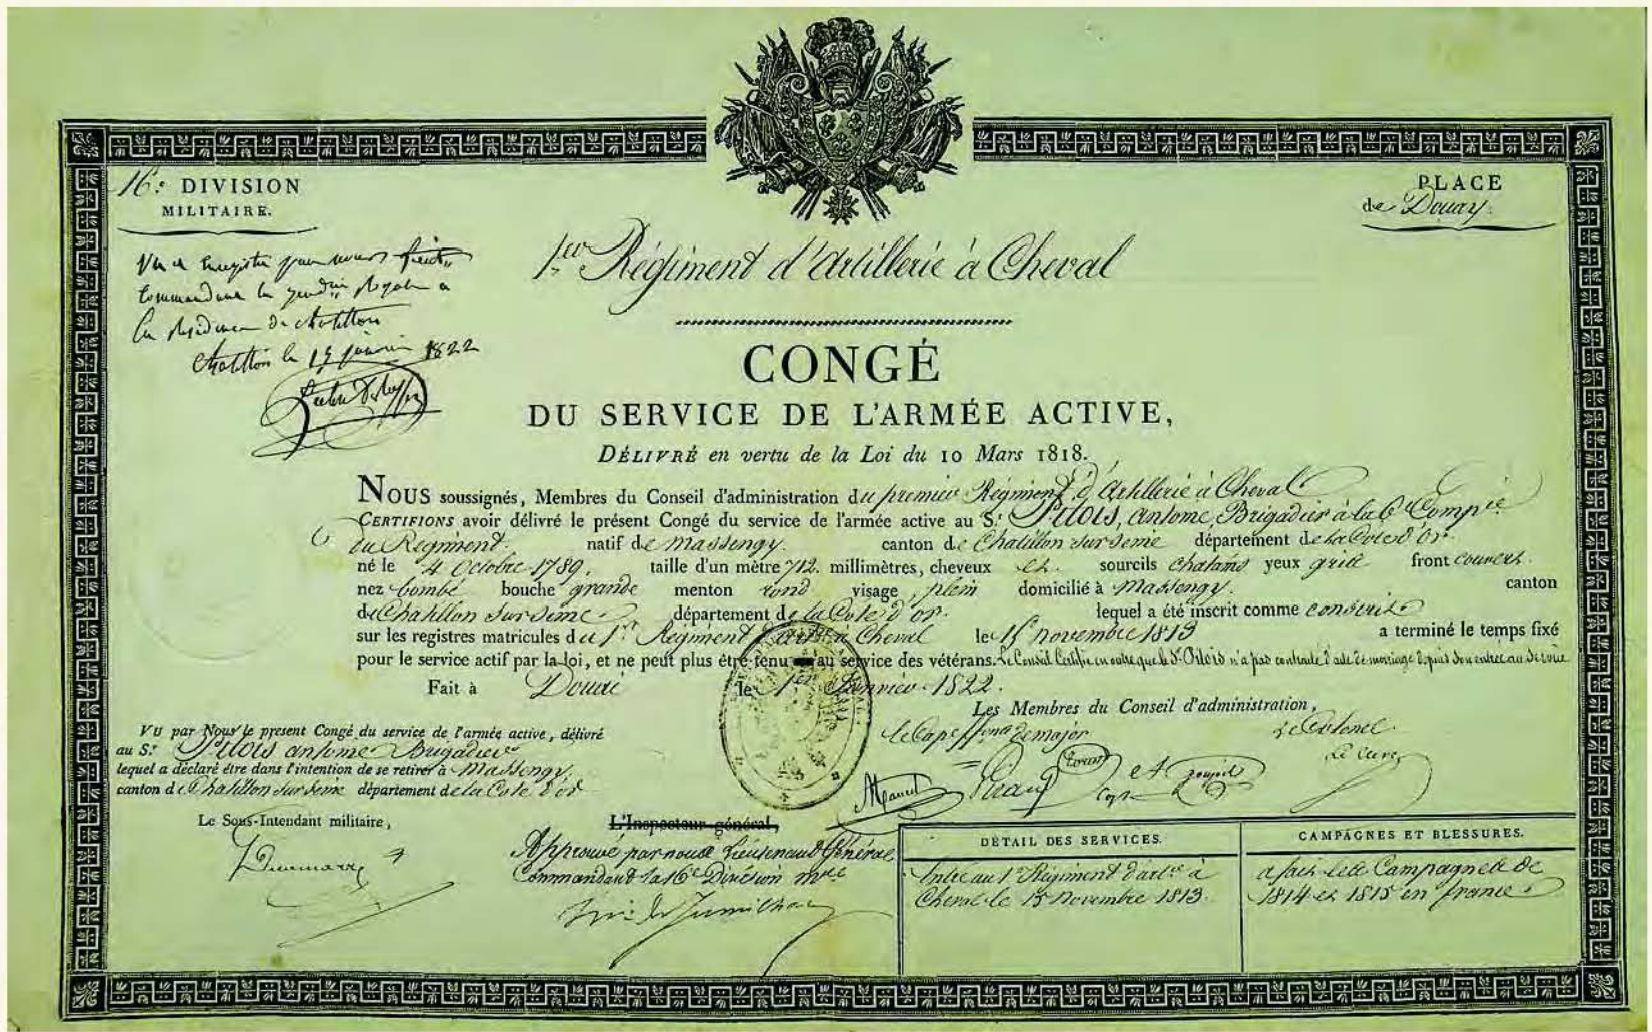 16e DIVISION
MILITAIRE.
PLACE
de Douay.
Commandant la Royale a
la Résidence de Chatillon
Chatillon le 1822
1er Régiment d'Artillerie à Cheval
CONGÉ
DU SERVICE DE L'ARMÉE ACTIVE,
DÉLIVRÉ en vertu de la Loi du 10 Mars 1818.
NOUS soussignés, Membres du Conseil d'administration du premier Régiment d'Artillerie à Cheval
CERTIFIONS avoir délivré le présent Congé du service de l'armée active au S.r Pitois, antome, Brigadier à la 6e Compie
du Regiment. natif de Massengy. canton de Chatillon sur seine département de la Cote d'or.
né le 4 Octobre 1789, taille d'un mètre 712. millimètres, cheveux et sourcils chatains yeux gris front couvert
nez bombé bouche grande menton rond visage plein domicilié à Massengy. canton
de Chatillon sur seine département de la Cote d'or. lequel a été inscrit comme conscrit
sur les registres matricules du 1er Régiment d'art. à Cheval le 15 novembre 1813 a terminé le temps fixé
pour le service actif par la loi, et ne peut plus être tenu au service des vétérans. Le Conseil Certifie en outre que le Sr. Pitois n'a pas contracté d'acte de mariage depuis son entrée au service
Fait à Douai le 1er Janvier 1822.
Les Membres du Conseil d'administration,
VU par Nous le present Congé du service de l'armée active, délivré
au S.r Pitois antome Brigadier
lequel a déclaré être dans l'intention de se retirer à Massengy,
canton de Chatillon sur seine département de la Cote d'or
Le Colonel
Le Sous-Intendant militaire,
L'Inspecteur général,
Approuvé par nous Lieutenant Général
Commandant la 16e Division mre
DÉTAIL DES SERVICES.
Entré au 1er Régiment d'artie à
Cheval le 15 Novembre 1813.
CAMPAGNES ET BLESSURES.
a fait les Campagnes de
1814 et 1815 en france.